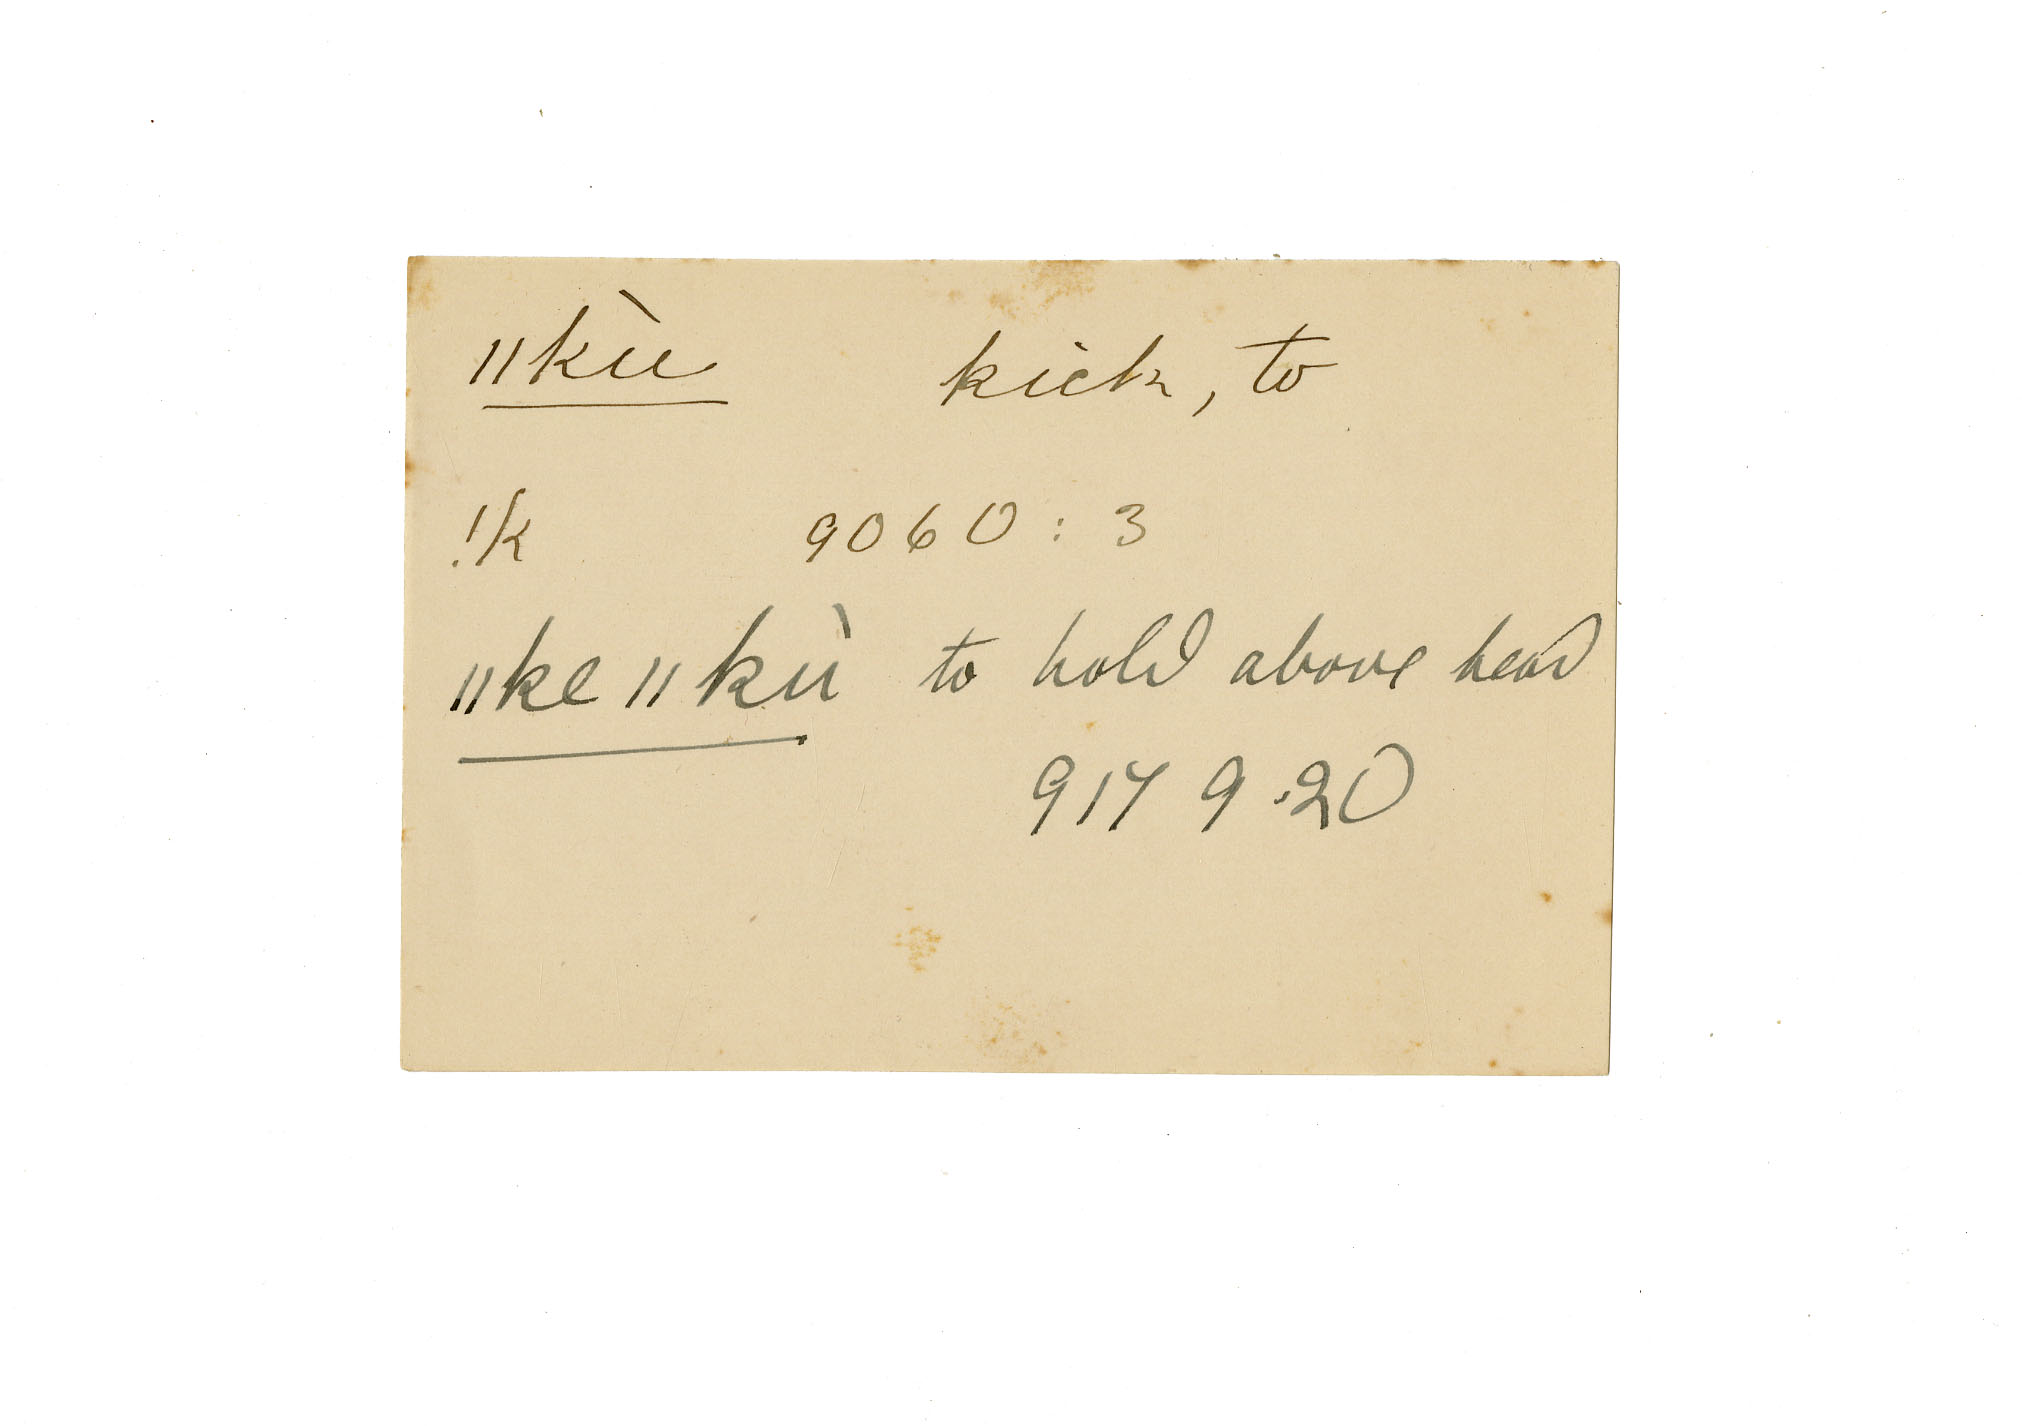 ǁkù kick, to
!k 9060 : 3
ǁke ǁkù to hold above head
9179.20